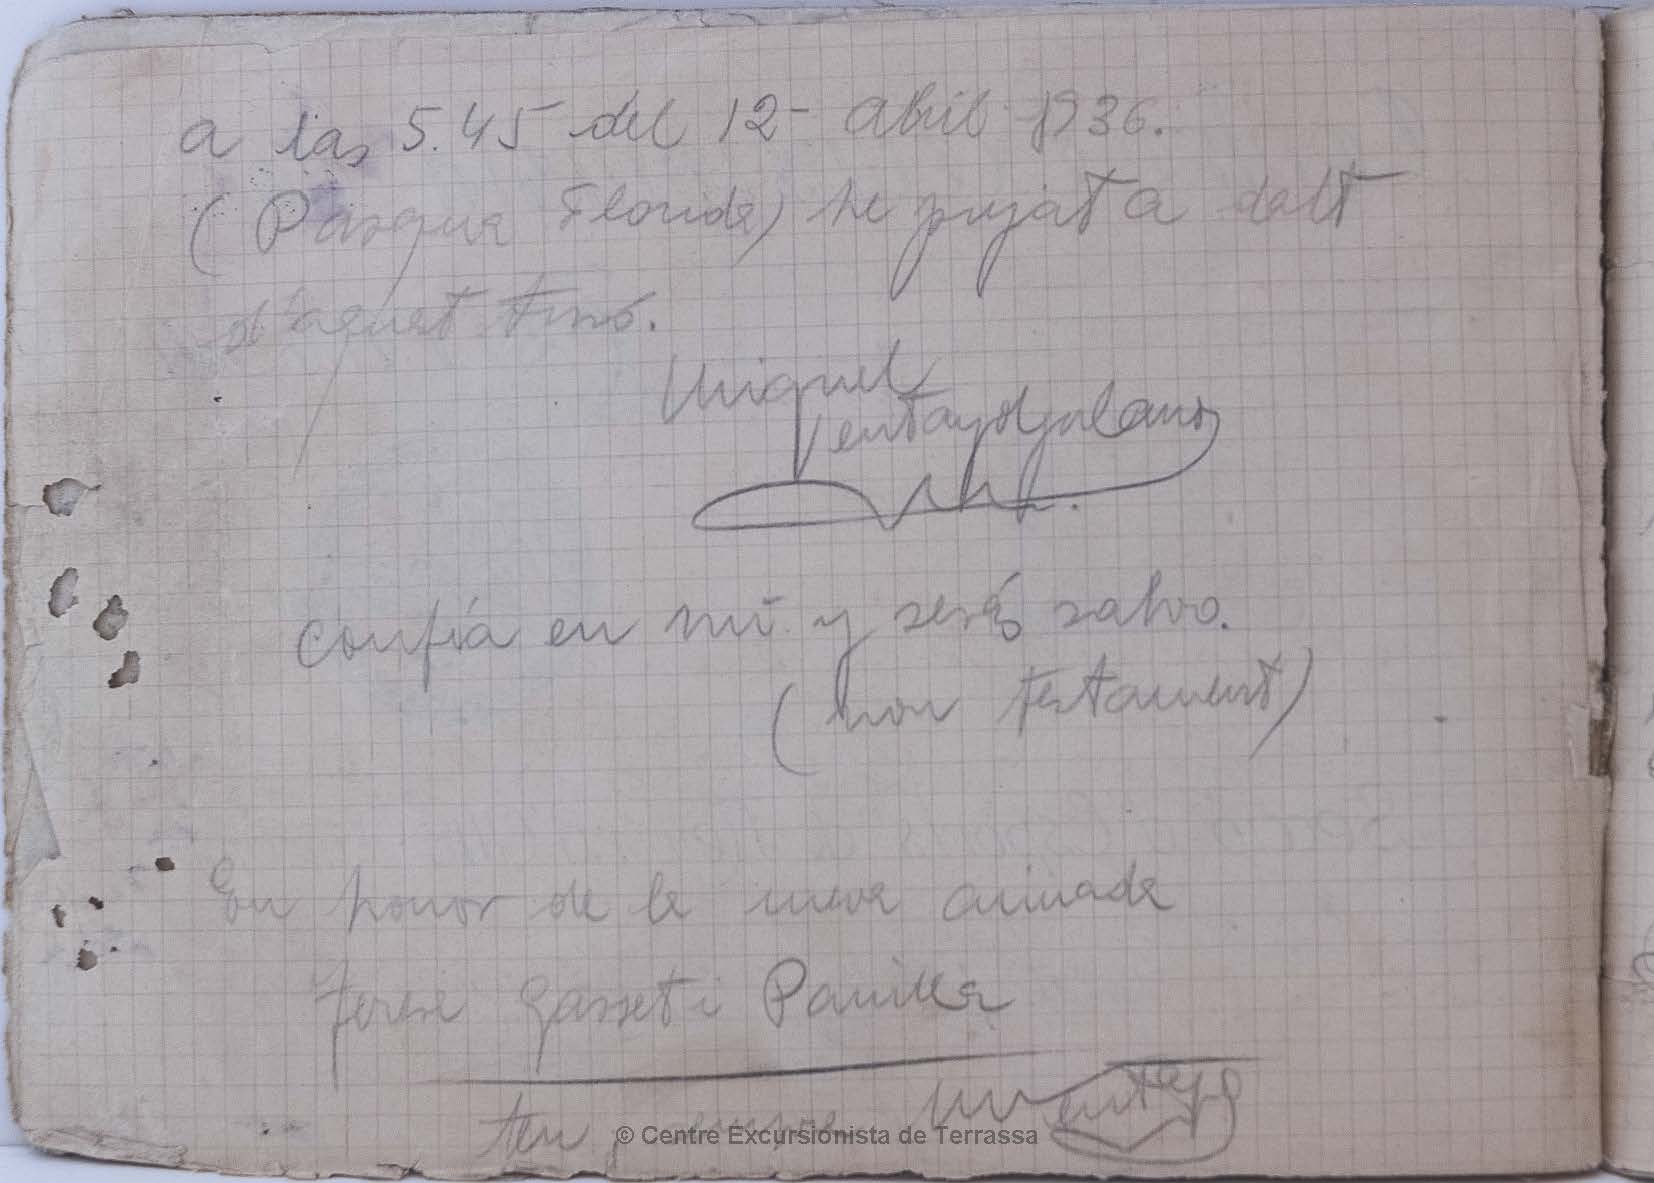 a las 5.45 del 12- abril 1936.
(Pasqua Florida) he pujat a dalt
d'aquet turó.
Miquel
Ventayol
confía en mí y serás salvo.
(nou testament)
En honor de la meva aimada
Teresa Gasset i
© Centre Excursionista de Terrassa